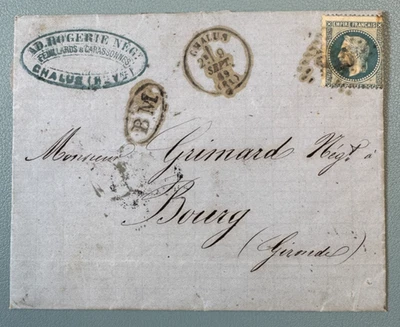 AD. ROGERIE NÉGT
FEUILLARDS & CARASSONNES
CHALUS (HTE VNE)
CHALUS
SEPT
EMPIRE FRANÇAIS
BM
Monsieur Grimard Négt à
Bourg
(Gironde)